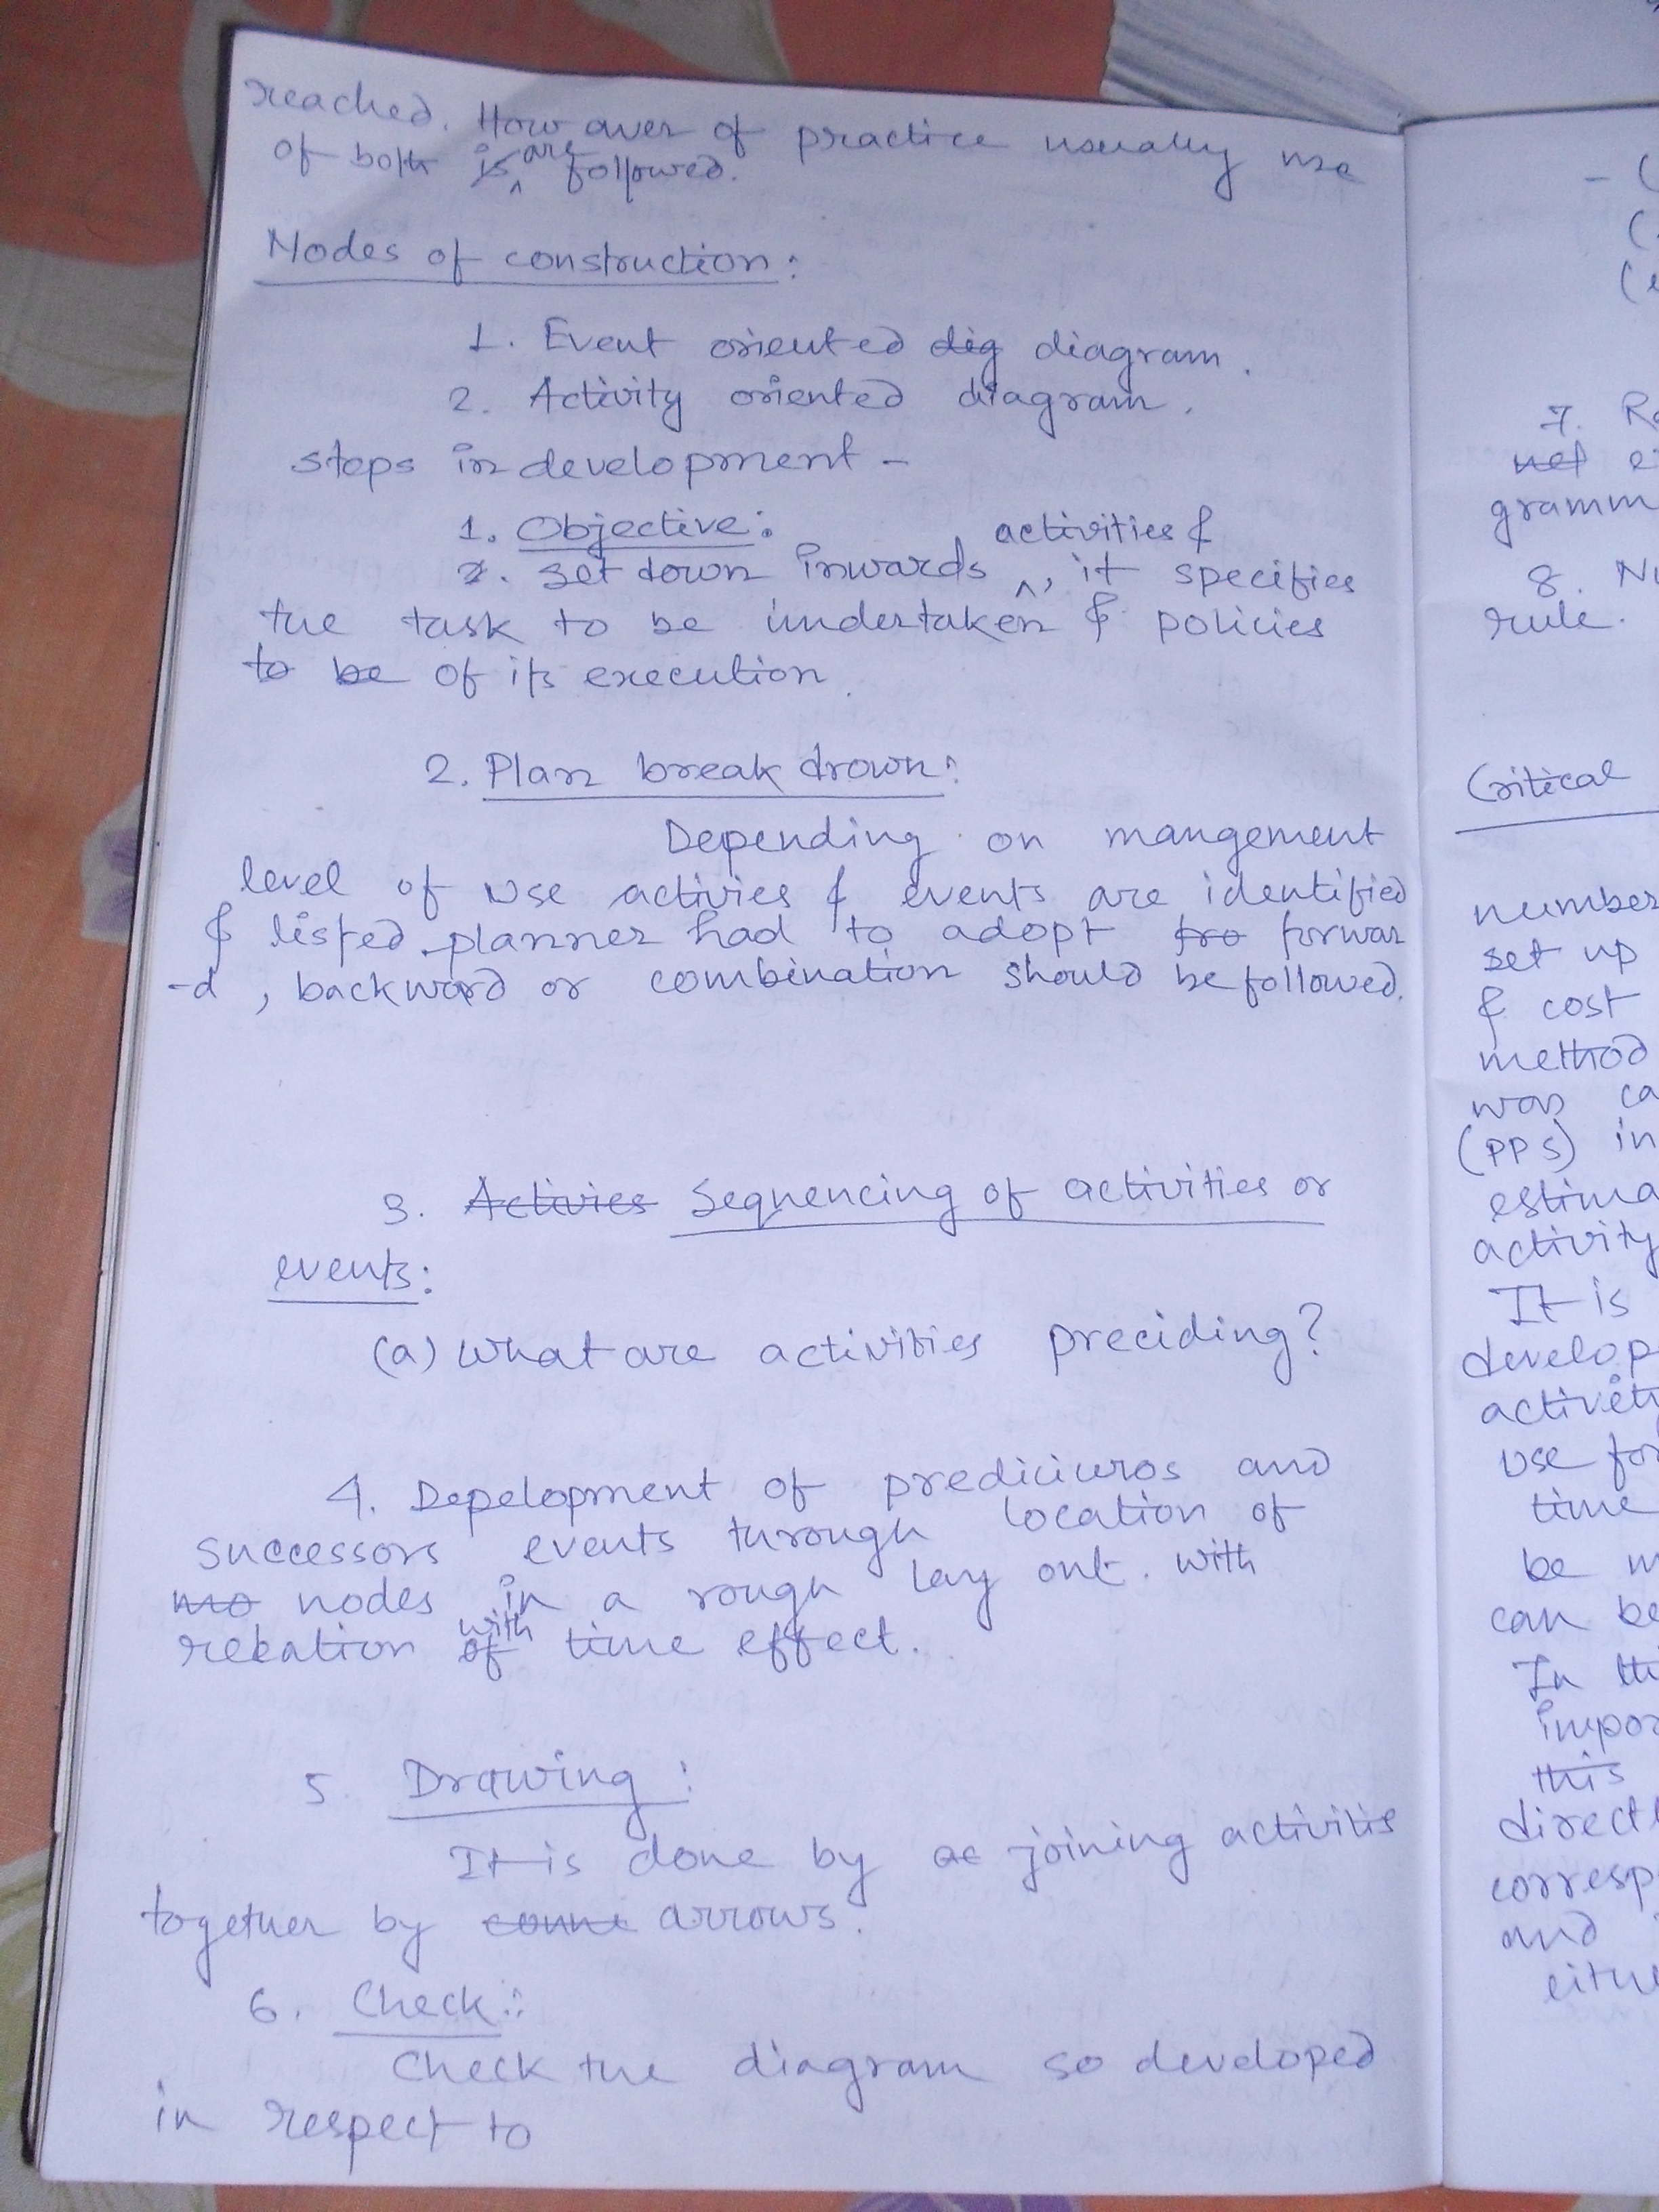 reached. How over of practice usually use
of both are followed.
Modes of construction:
1. Event oriented diagram.
2. Activity oriented diagram.
steps in development -
1. Objective:
set down inwards activities &, it specifies
the task to be undertaken & policies
of its execution.
2. Plan break drown:
Depending on mangement
level of use activies & events are identified
& listed planner had to adopt forwar
-d, backward or combination should be followed.
3. Sequencing of activities or
events:
(a) What are activities preciding?
4. Depelopment of and
successors events through location of
nodes in a rough lay out. with
relation with time effect.
5. Drawing:
It is done by joining activitis
together by arrows.
6. Check:
Check the diagram so developed
in respect to
7.
gramm
8.
rule.
Critical
number
set up
& cost
method
was ca
(PPS) in
estima
activity
It is
develop
activet
use for
time
be m
can be
In thi
impor
this
direct
corresp
and